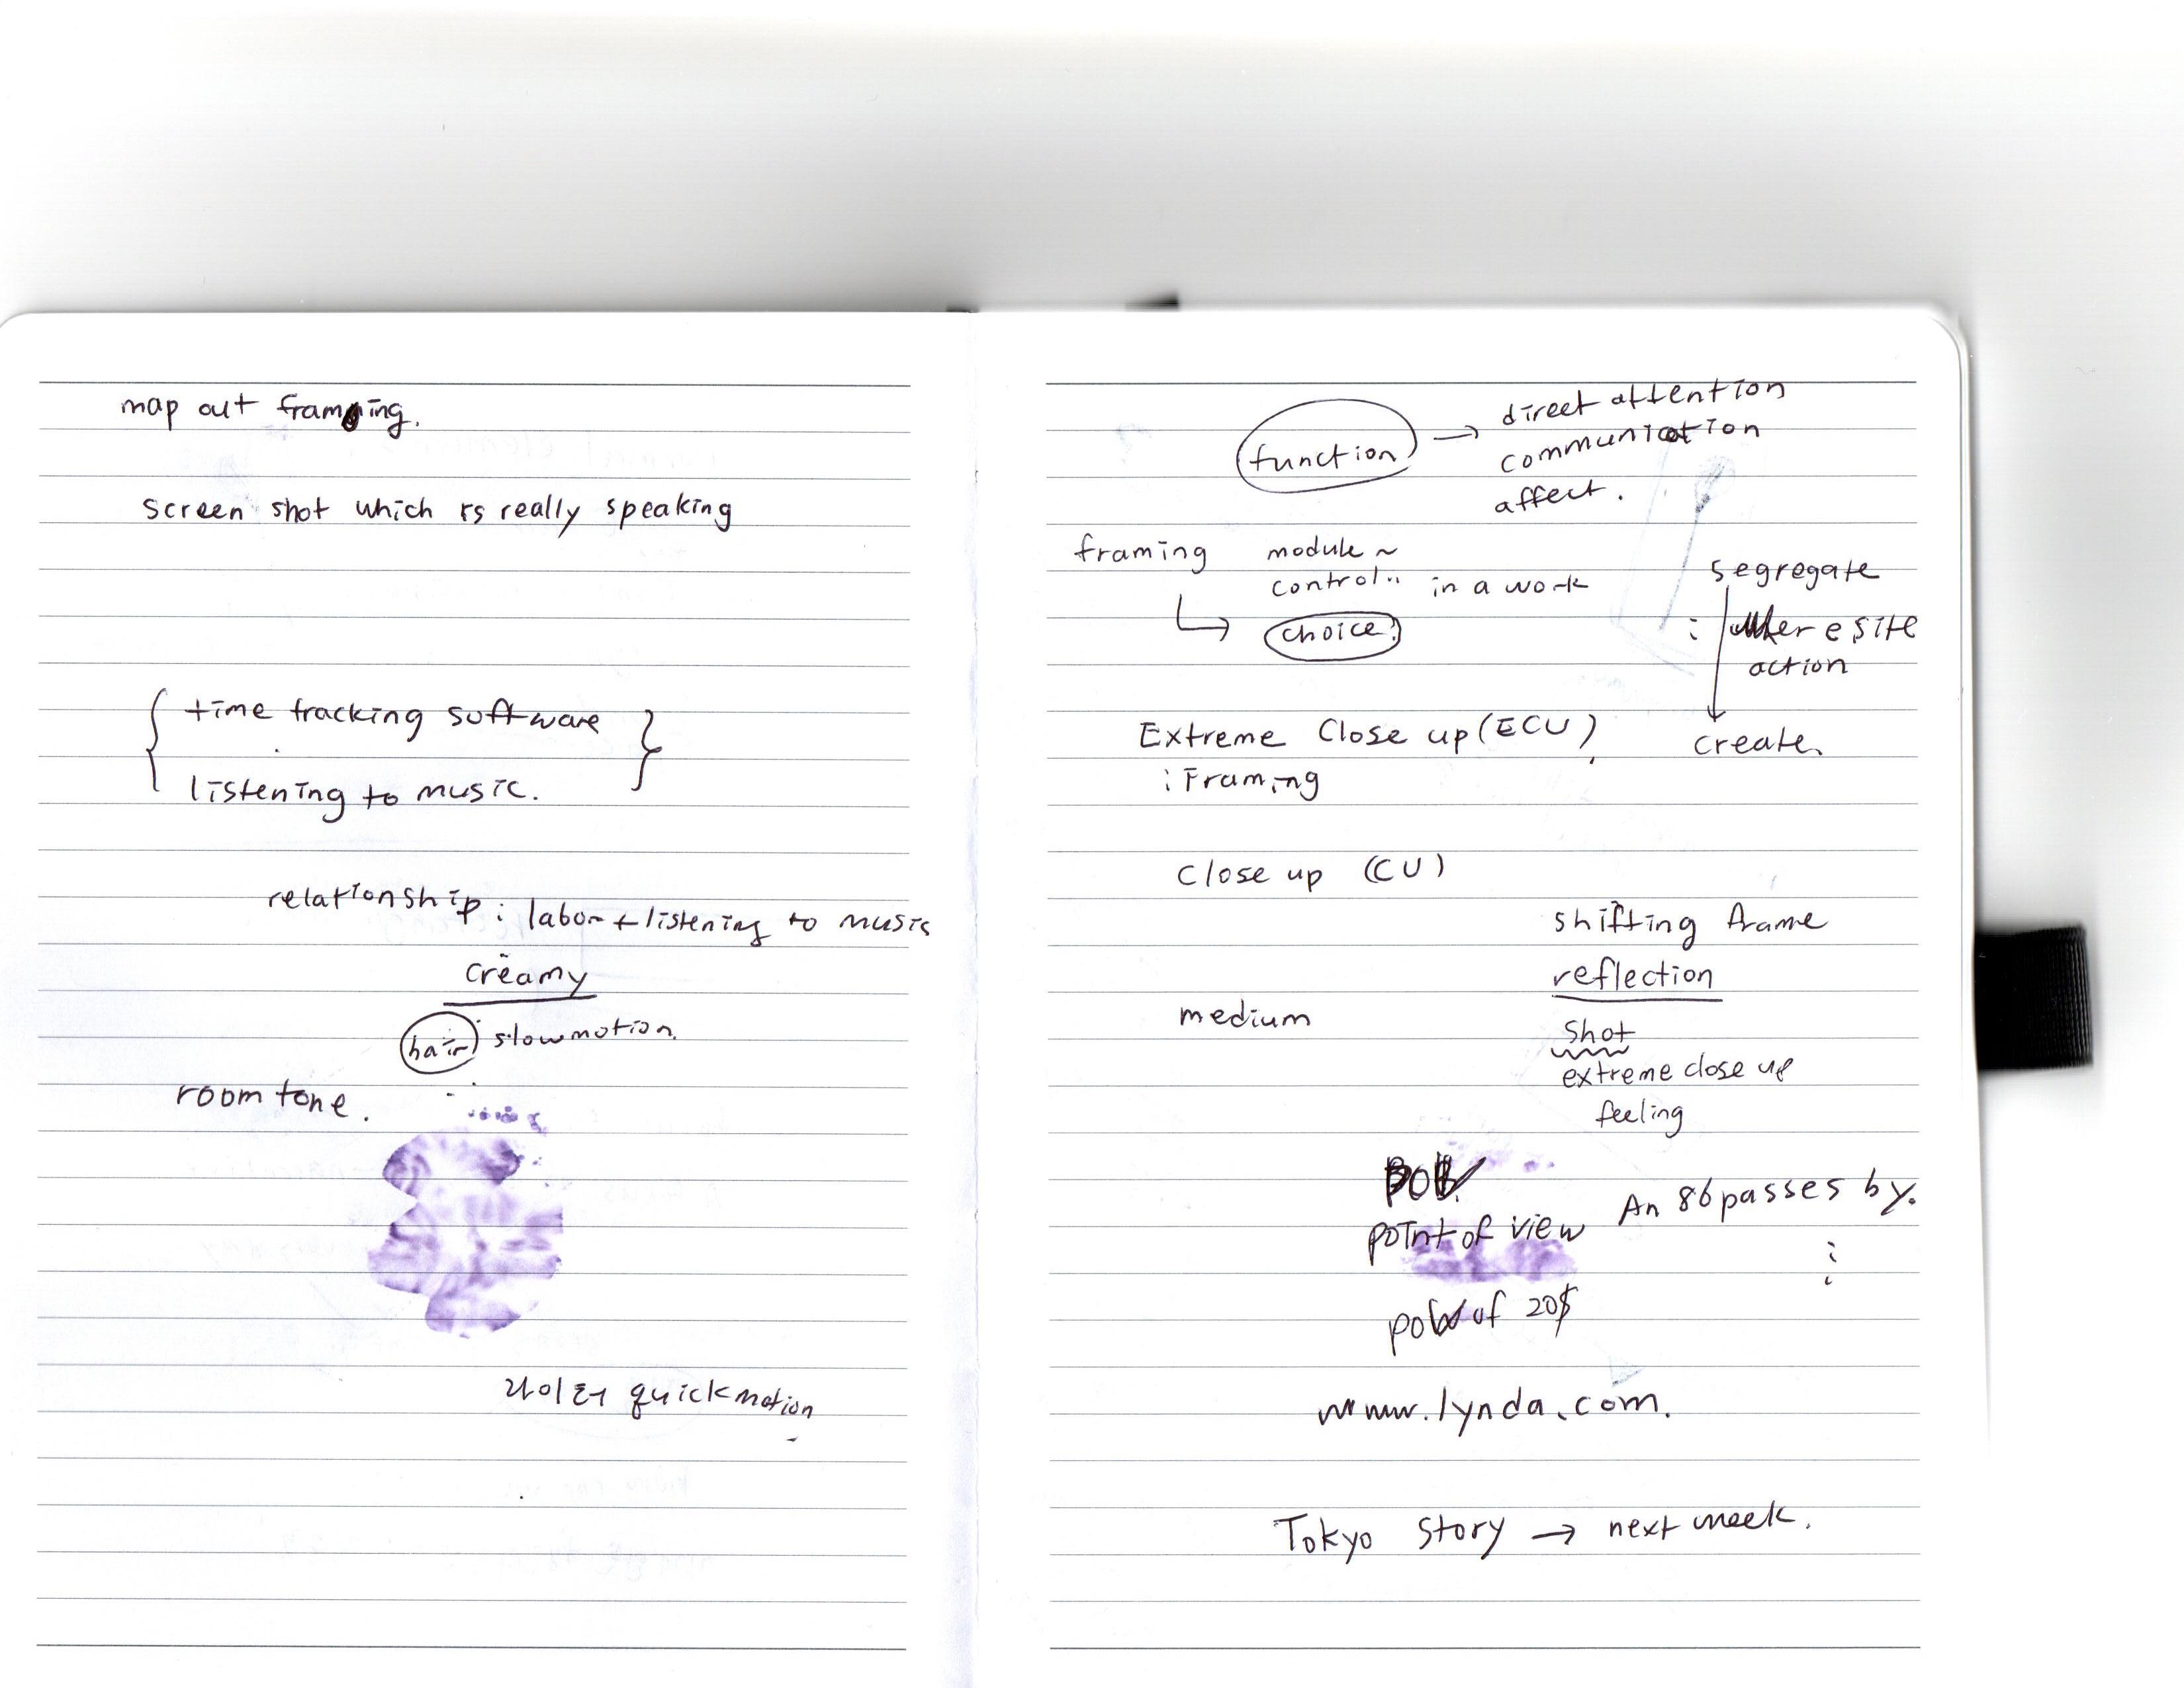 map out framing.
screen shot which is really speaking
time tracking software
listening to music.
relationship : labor + listening to music
creamy
hair slow motion.
room tone.
라이터 quick motion
function → direct attention
communication
affect.
framing module ~
control.. in a work
choice?
segregate
: site
action
create.
Extreme Close up (ECU)
: Framing
Close up (CU)
shifting frame
reflection
medium
shot
extreme close up
feeling
point of view
An 86 passes by.
of 20$
www.lynda.com.
Tokyo Story → next week.